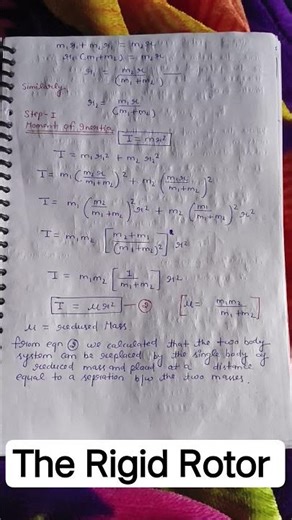 m₁r₁ + m₂r₁ = m₂r
r₁(m₁+m₂) = m₂r
r₁ = m₂r / (m₁+m₂)
Similarly,
r₂ = m₁r / (m₁+m₂)
Step-I
Moment of Inertia
I = mr²
I = m₁r₁² + m₂r₂²
I = m₁(m₂r / m₁+m₂)² + m₂(m₁r / m₁+m₂)²
I = m₁(m₂ / m₁+m₂)²r² + m₂(m₁ / m₁+m₂)²r²
I = m₁m₂[m₂+m₁ / (m₁+m₂)²]r²
I = m₁m₂[1 / m₁+m₂]r²
I = μr² —③ [μ = m₁m₂ / m₁+m₂]
μ = reduced Mass
from eqn ③ we calculated that the two body
system can be replaced by the single body of
reduced mass and placed at a distance
equal to a sepration b/w the two masses.
The Rigid Rotor